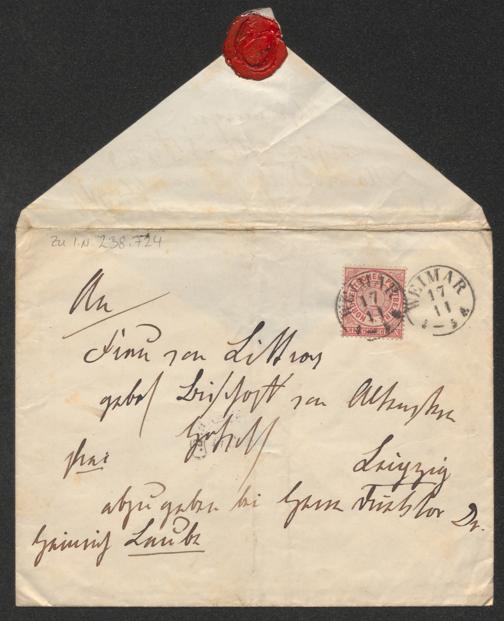 Zu I.N 238.724
WEIMAR
17
11
WEIMAR
17
11
An
Frau von Littrow
gebor Bischoff von Altenstern
frei
Leipzig
abzugeben bei Herrn Direktor Dr.
Heinrich Laube